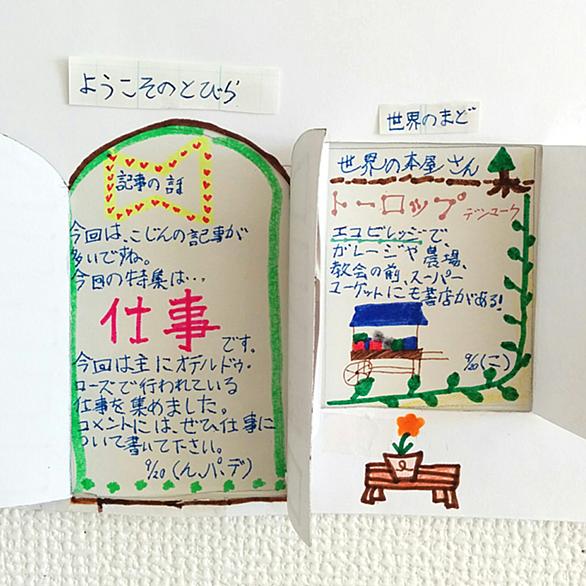 ようこそのとびら
記事の話
今回は、こじんの記事が
多いですね。
今回の特集は…
仕事
です。
今回は主にオテルドゥ・
ローズで行われている
仕事を集めました。
コメントには、ぜひ仕事に
ついて書いて下さい。
9/20(ん、パデ)
世界のまど
世界の本屋さん
トーロップ
デンマーク
エコビレッジで、
ガレージや農場、
教会の前、スーパー
マーケットにも書店がある!
9/20(こ)